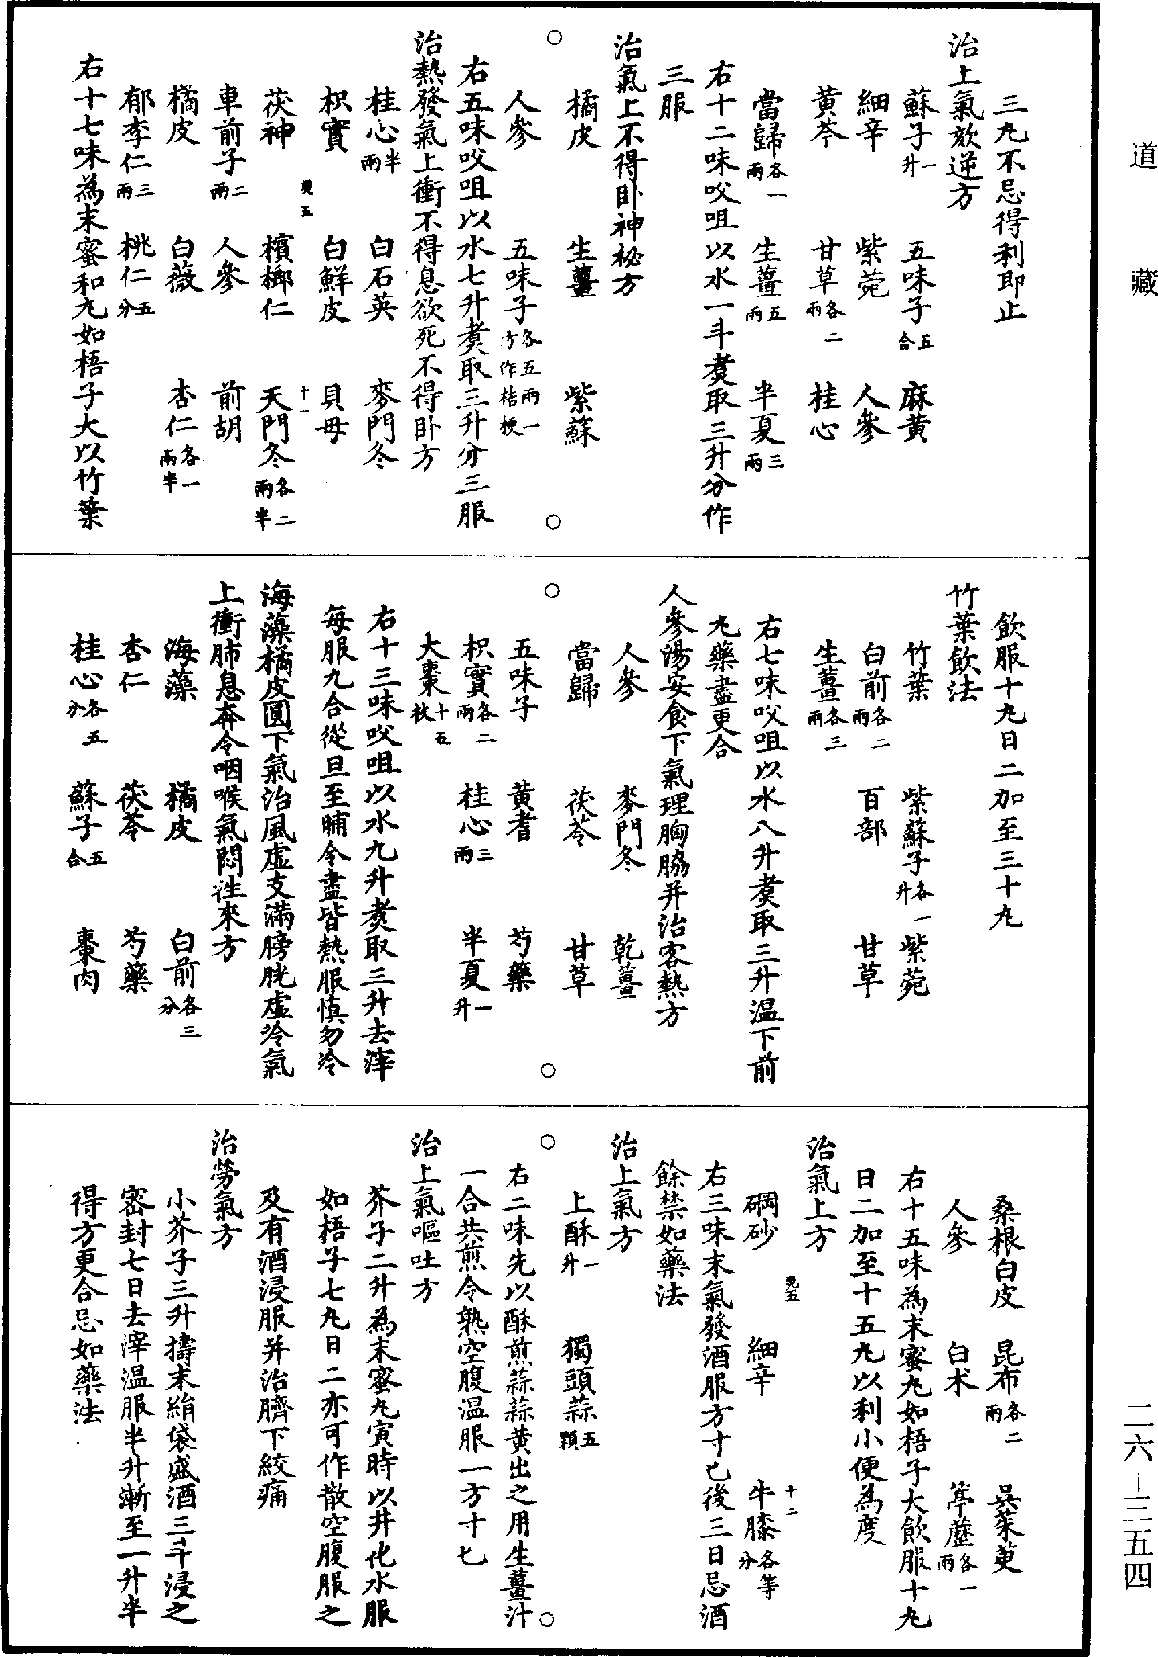 道藏
三丸不忌得利即止
治上氣欬逆方
蘇子一升 五味子五合 麻黃
細辛 紫菀 人參
黃芩 甘草各二兩 桂心
當歸各一兩 生薑五兩 半夏三兩
右十二味㕮咀以水一斗煑取三升分作
三服
治氣上不得卧神祕方
橘皮 生薑 紫蘇
人參 五味子各五兩一方作桔梗
右五味㕮咀以水七升煑取三升分三服
治熱發氣上衝不得息欲死不得卧方
桂心半兩 白石英 麥門冬
枳實 白鮮皮 貝母
茯神 檳榔仁 天門冬各二兩半
車前子二兩 人參 前胡
橘皮 白薇 杏仁各一兩半
郁李仁三兩 桃仁五分
右十七味為末蜜和丸如梧子大以竹葉
飲服十丸日二加至三十丸
竹葉飲法
竹葉 紫蘇子各一升 紫菀
白前各二兩 百部 甘草
生薑各三兩
右七味㕮咀以水八升煑取三升温下前
丸藥盡更合
人參湯安食下氣理胸脇并治客熱方
人參 麥門冬 乾薑
當歸 茯苓 甘草
五味子 黃耆 芍藥
枳實各二兩 桂心三兩 半夏一升
大棗十五枚
右十三味㕮咀以水九升煑取三升去滓
每服九合從旦至晡令盡皆熱服慎勿冷
海藻橘皮圓下氣治風虛支滿膀胱虛冷氣
上衝肺息奔令咽喉氣悶往來方
海藻 橘皮 白前各三分
杏仁 茯苓 芍藥
桂心各五分 蘇子五合 棗肉
桑根白皮 昆布各二兩 吳茱萸
人參 白术 葶藶各一兩
右十五味為末蜜丸如梧子大飲服十丸
日二加至十五丸以利小便為度
治氣上方
碙砂 細辛 牛膝各等分
右三味末氣發酒服方寸匕後三日忌酒
餘禁如藥法
治上氣方
上酥一升 獨頭蒜五顆
右二味先以酥煎蒜蒜黃出之用生薑汁
一合共煎令熟空腹温服一方寸匕
治上氣嘔吐方
芥子二升為末蜜丸寅時以井化水服
如梧子七丸日二亦可作散空腹服之
及有酒浸服并治臍下絞痛
治勞氣方
小芥子三升擣末絹袋盛酒三斗浸之
密封七日去滓温服半升漸至一升半
得方更合忌如藥法
二六—三五四